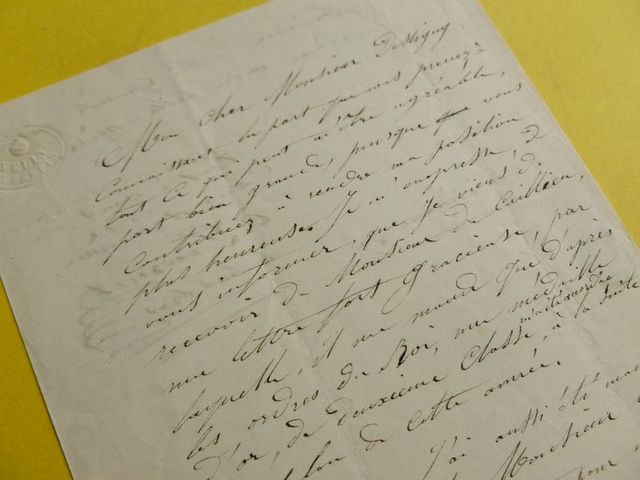 Mon cher Monsieur Destigny
Connaissant la part que vous prenez à
tout ce qui peut m'être agréable,
part bien grande, puisque vous
contribuez à rendre ma position
plus heureuse. Je m'empresse, de
vous informer, que je viens de
recevoir de Monsieur de Cailleux,
une lettre fort gracieuse, par
laquelle, il me mande que d'après
les ordres du Roi, une médaille
d'or, de deuxième classe, m'a été accordée à la suite
du salon de cette année.
J'ai aussi été
Monsieur